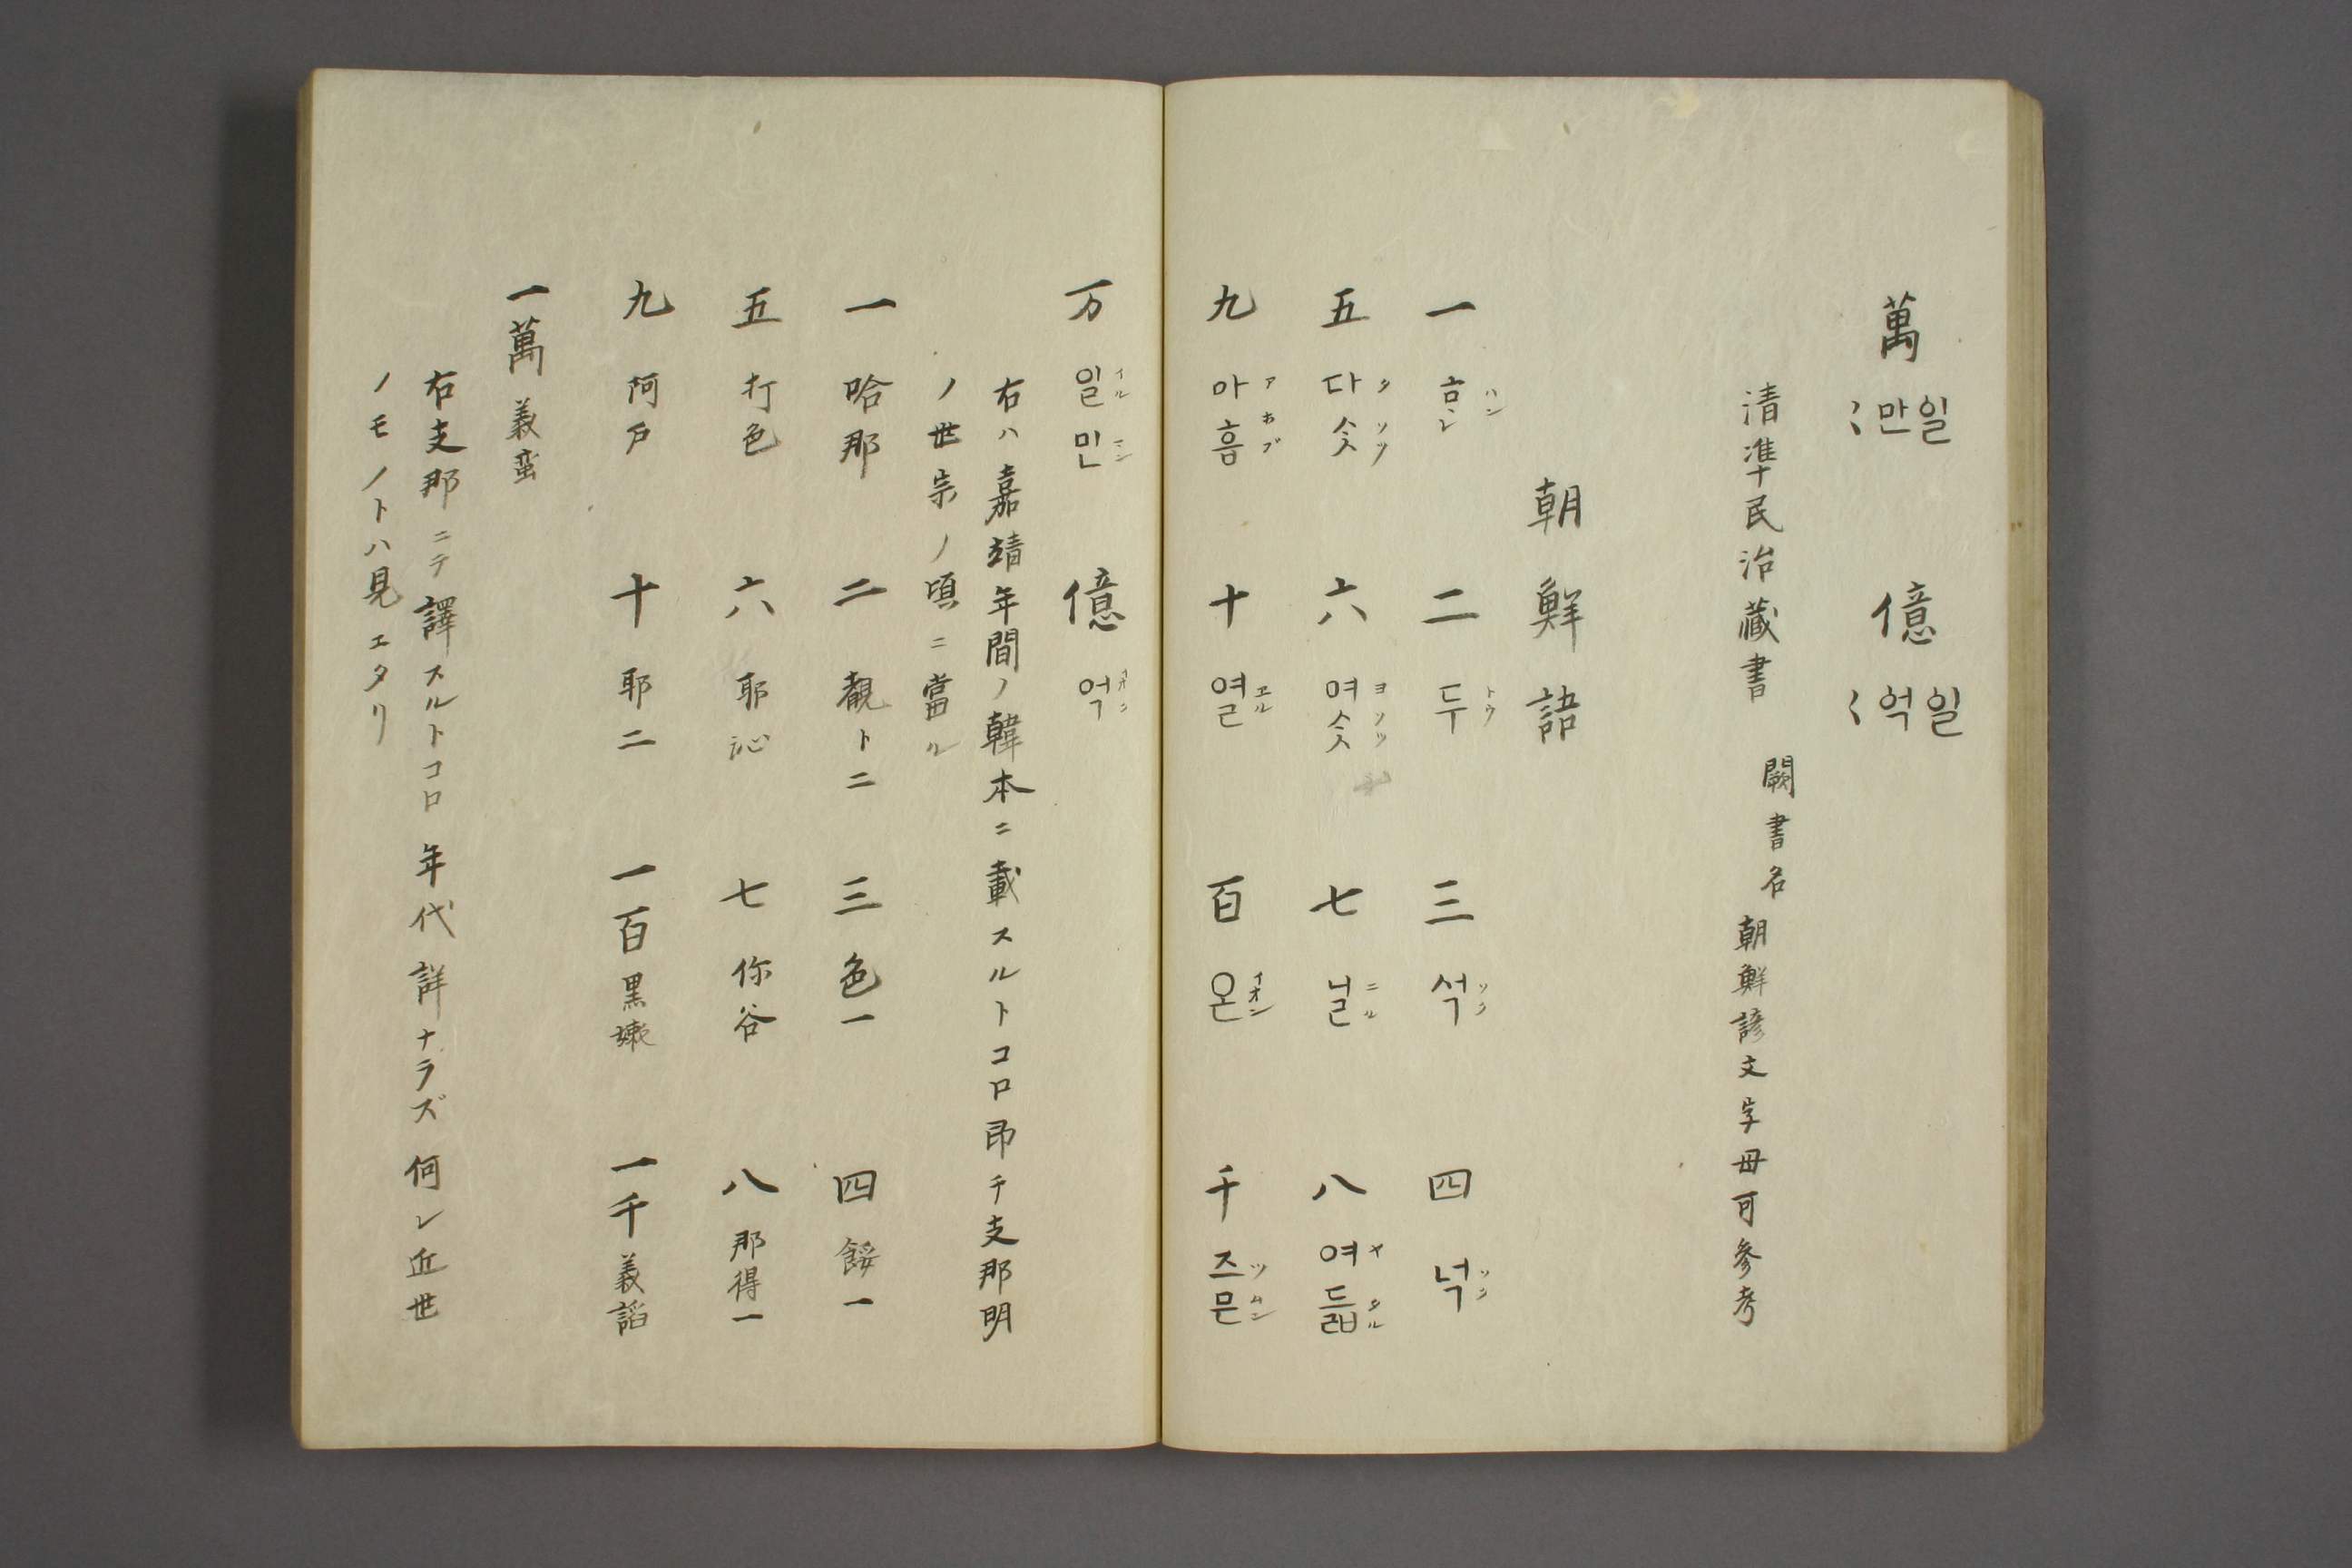 萬 일만〻 億 일억〻
清準民治藏書 闕書名 朝鮮諺文字母可參考
朝鮮語
一 흔 ハン 二 두 トウ 三 석 ソク 四 넉 ソク
五 다슷 タソツ 六 여슷 ヨソツ 七 닐 ニル 八 여듧 ヤタル
九 아흡 アホブ 十 열 エル 百 온 イオン 千 즈믄 ツムン
万 일만 イルミン 億 억
右ハ嘉靖年間ノ韓本ニ載スルトコロ即チ支那明
ノ世宗ノ頃ニ當ル
一 哈那 二 覩トニ 三 色一 四 餒一
五 打色 六 耶沁 七 你谷 八 那得一
九 阿戸 十 耶二 一百 黒嫩 一千 義諂
一萬 義蛮
右支那ニテ譯スルトコロ年代詳ナラズ何レ近世
ノモノトハ見エタリ